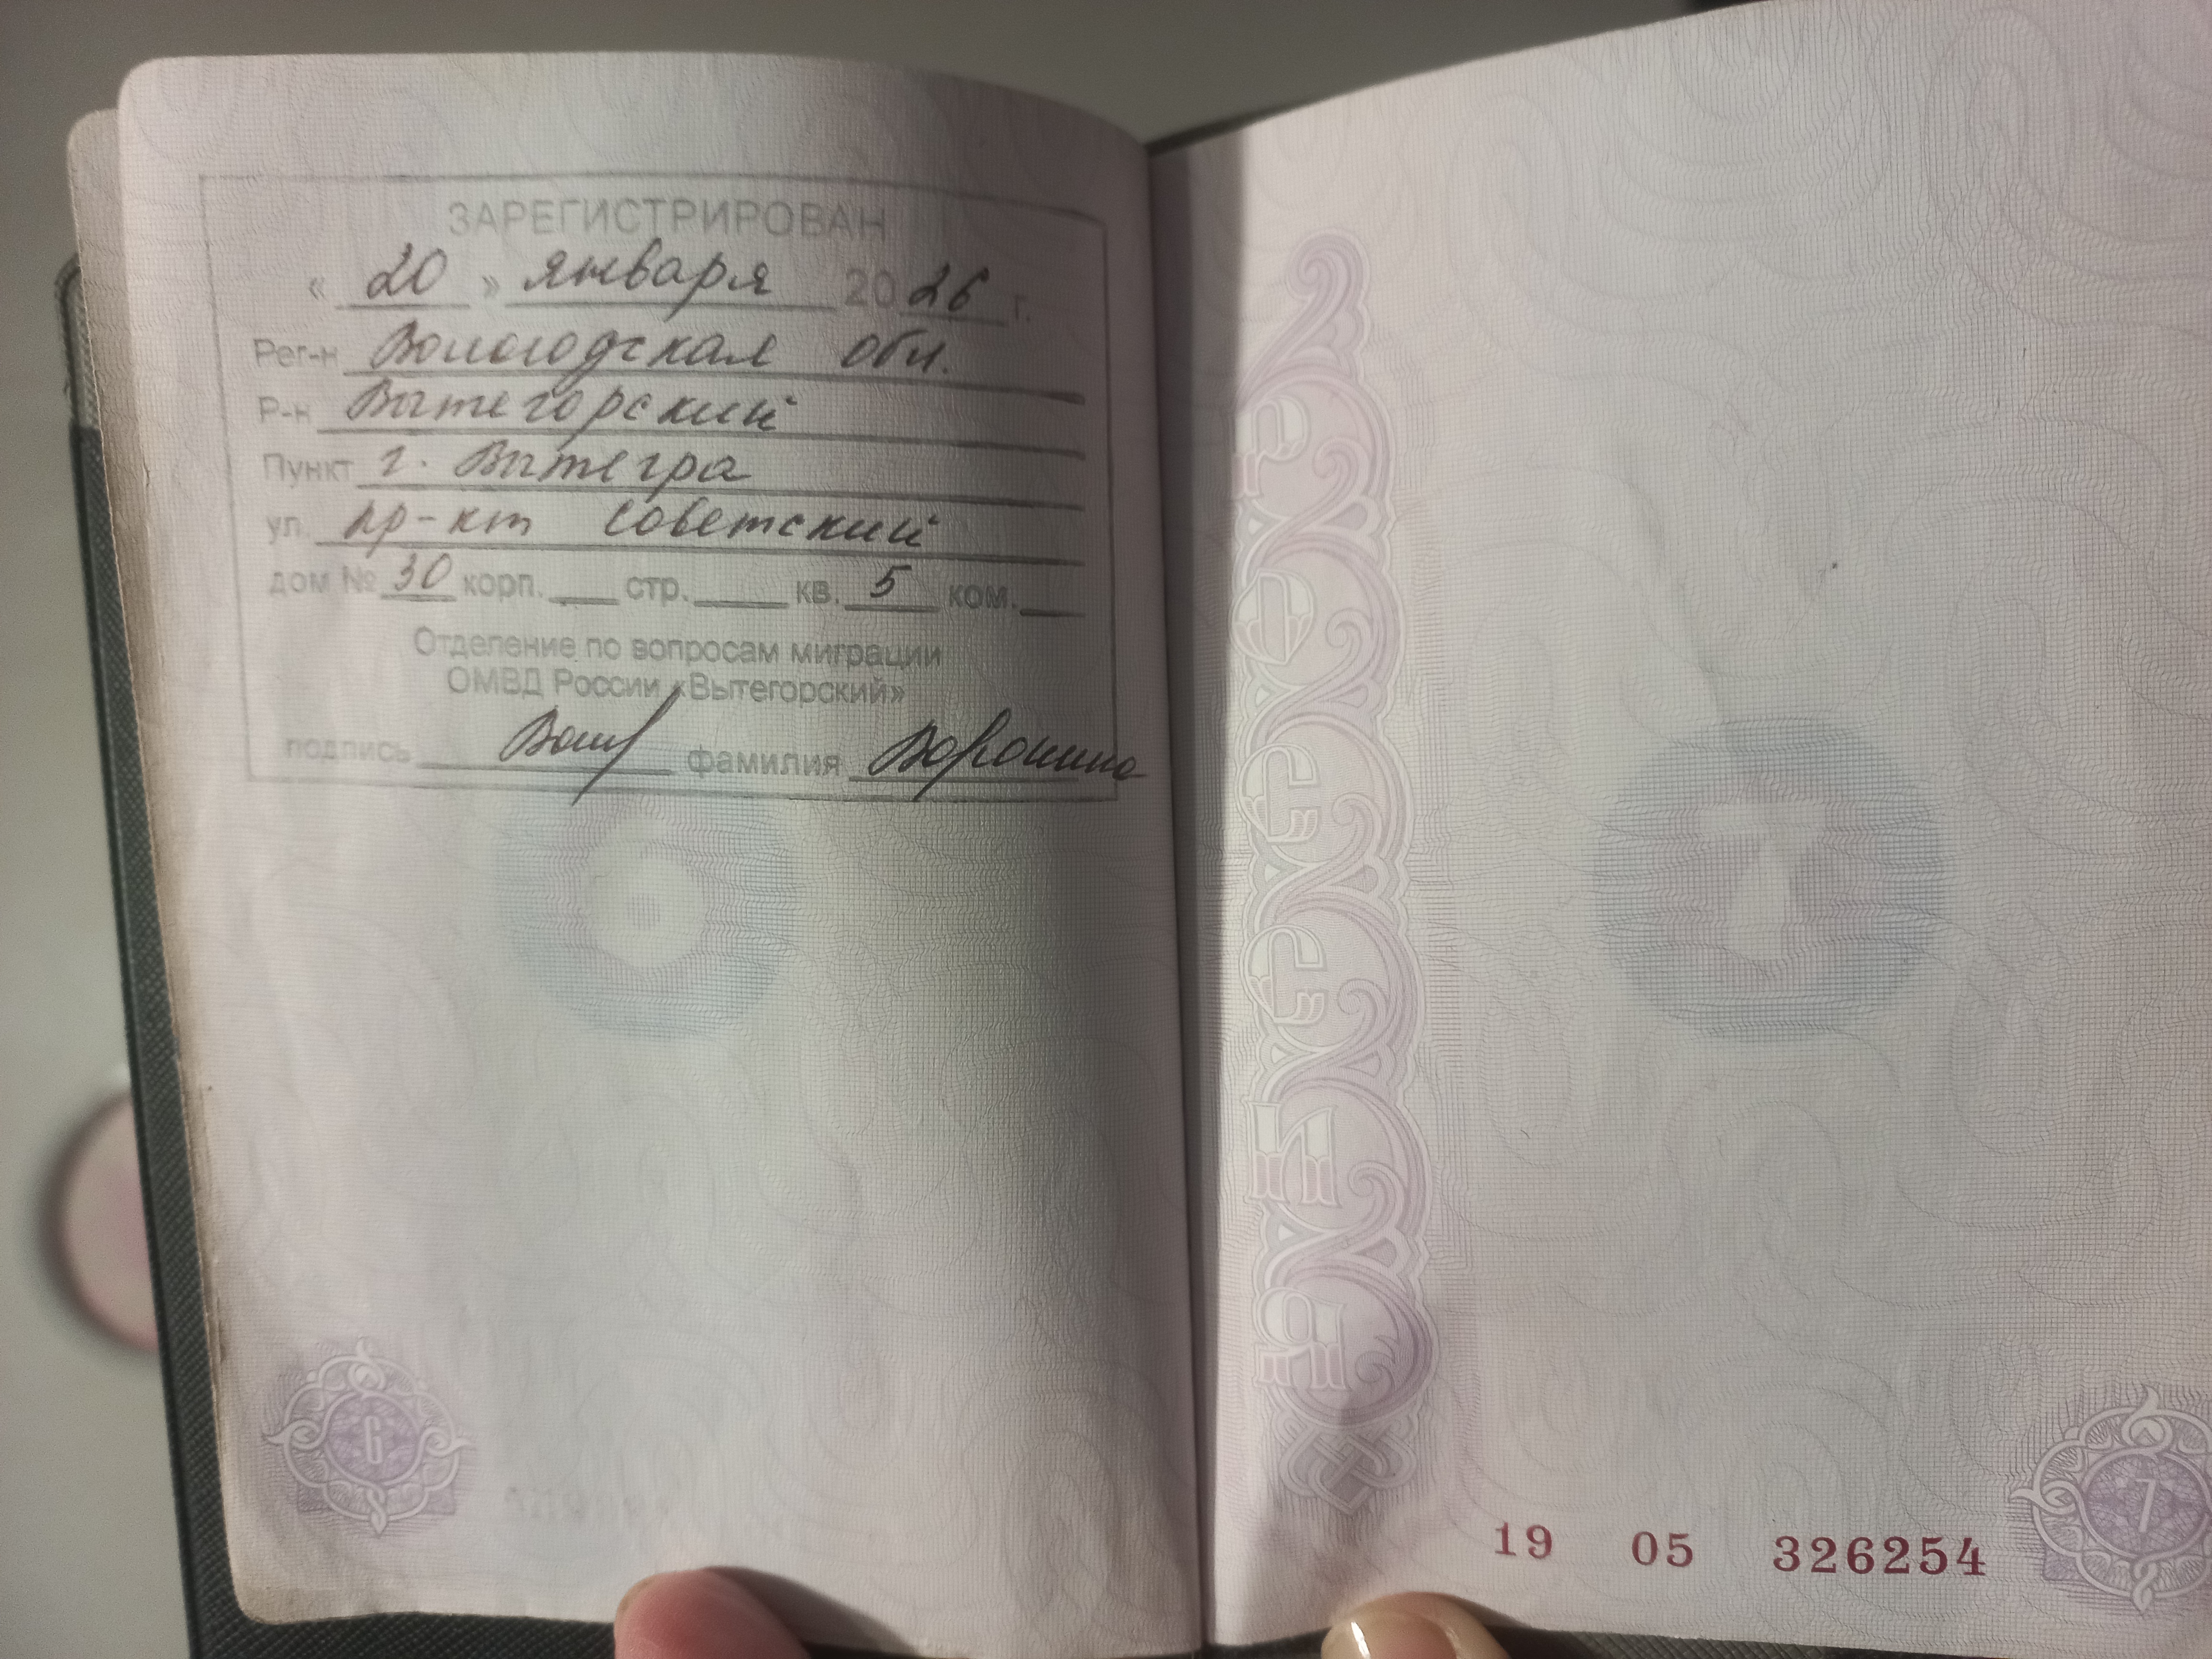 ЗАРЕГИСТРИРОВАН
« 20 » января 2026 г.
Рег-н Вологодская обл.
Р-н Вытегорский
Пункт г. Вытегра
ул. пр-кт Советский
дом № 30 корп. стр. кв. 5 ком.
Отделение по вопросам миграции
ОМВД России «Вытегорский»
подпись фамилия Воронина
6
РОССИЯ
19 05 326254
7